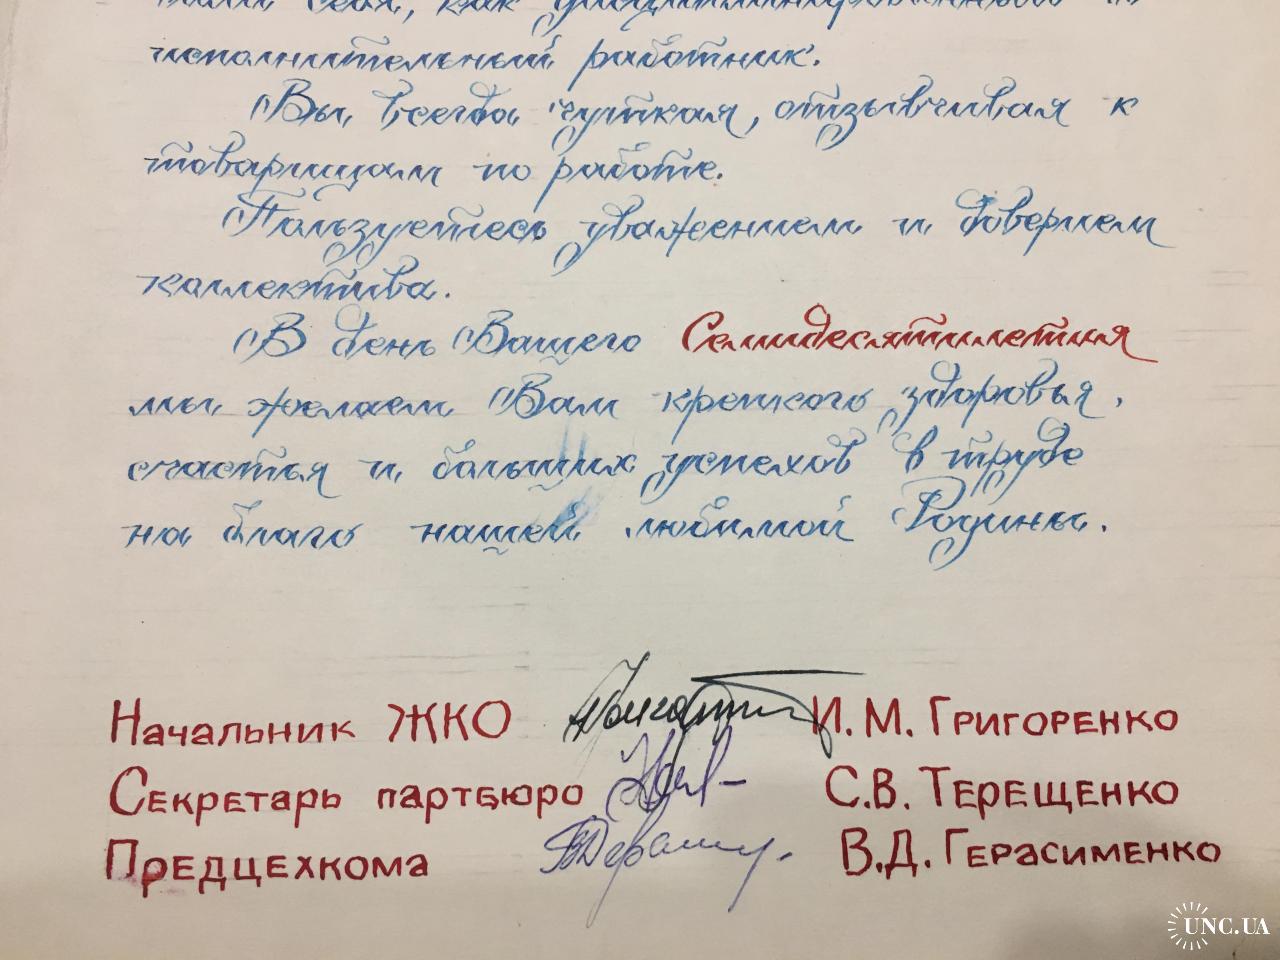 себя, как дисциплинированный и
исполнительный работник.
Вы всегда чуткая, отзывчивая к
товарищам по работе.
Пользуетесь уважением и доверием
коллектива.
В день Вашего Семидесятилетия
мы желаем Вам крепкого здоровья,
счастья и больших успехов в труде
на благо нашей любимой Родины.
Начальник ЖКО И. М. Григоренко
Секретарь партбюро С.В. Терещенко
Предцехкома В.Д. Герасименко
UNC.UA